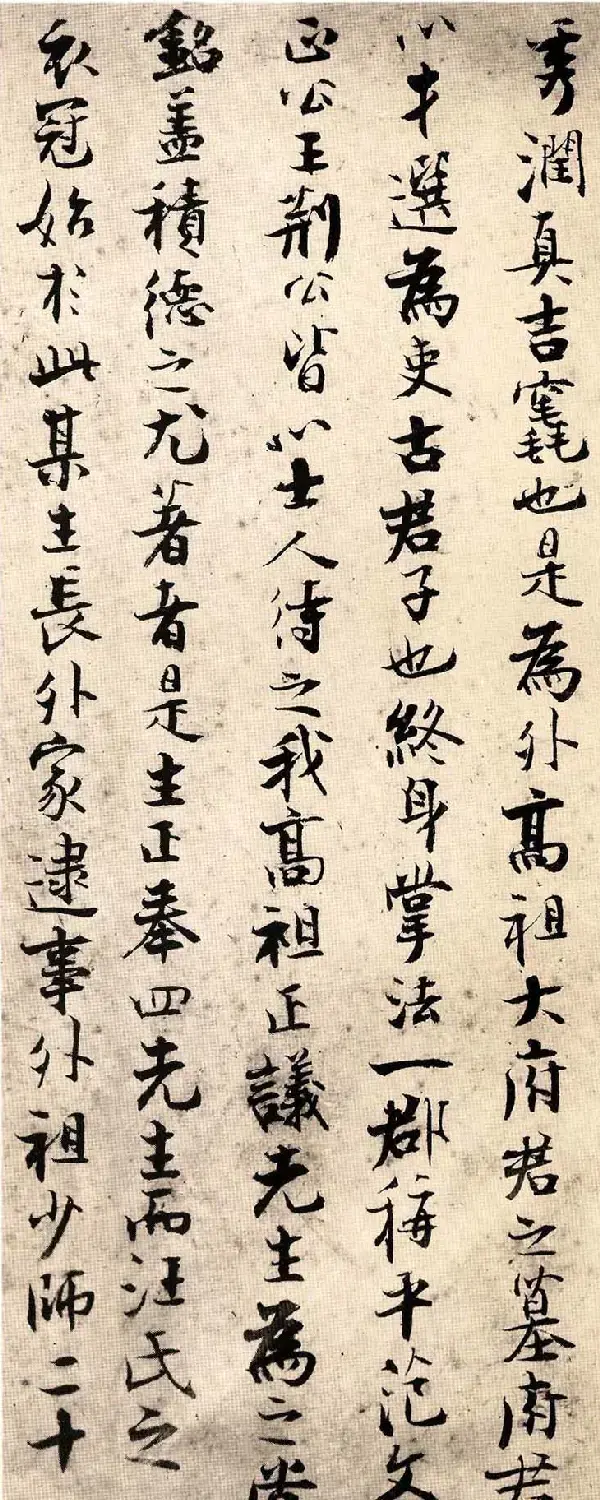 秀潤真吉竁也是為外高祖大府君之墓府君
以才選為吏古君子也終身掌法一郡稱平范文
正公王荆公皆以士人待之我高祖正議先生為之
銘蓋積德之尤著者是生正奉四先生而汪氏之
衣冠始於此某生長外家逮事外祖少師二十